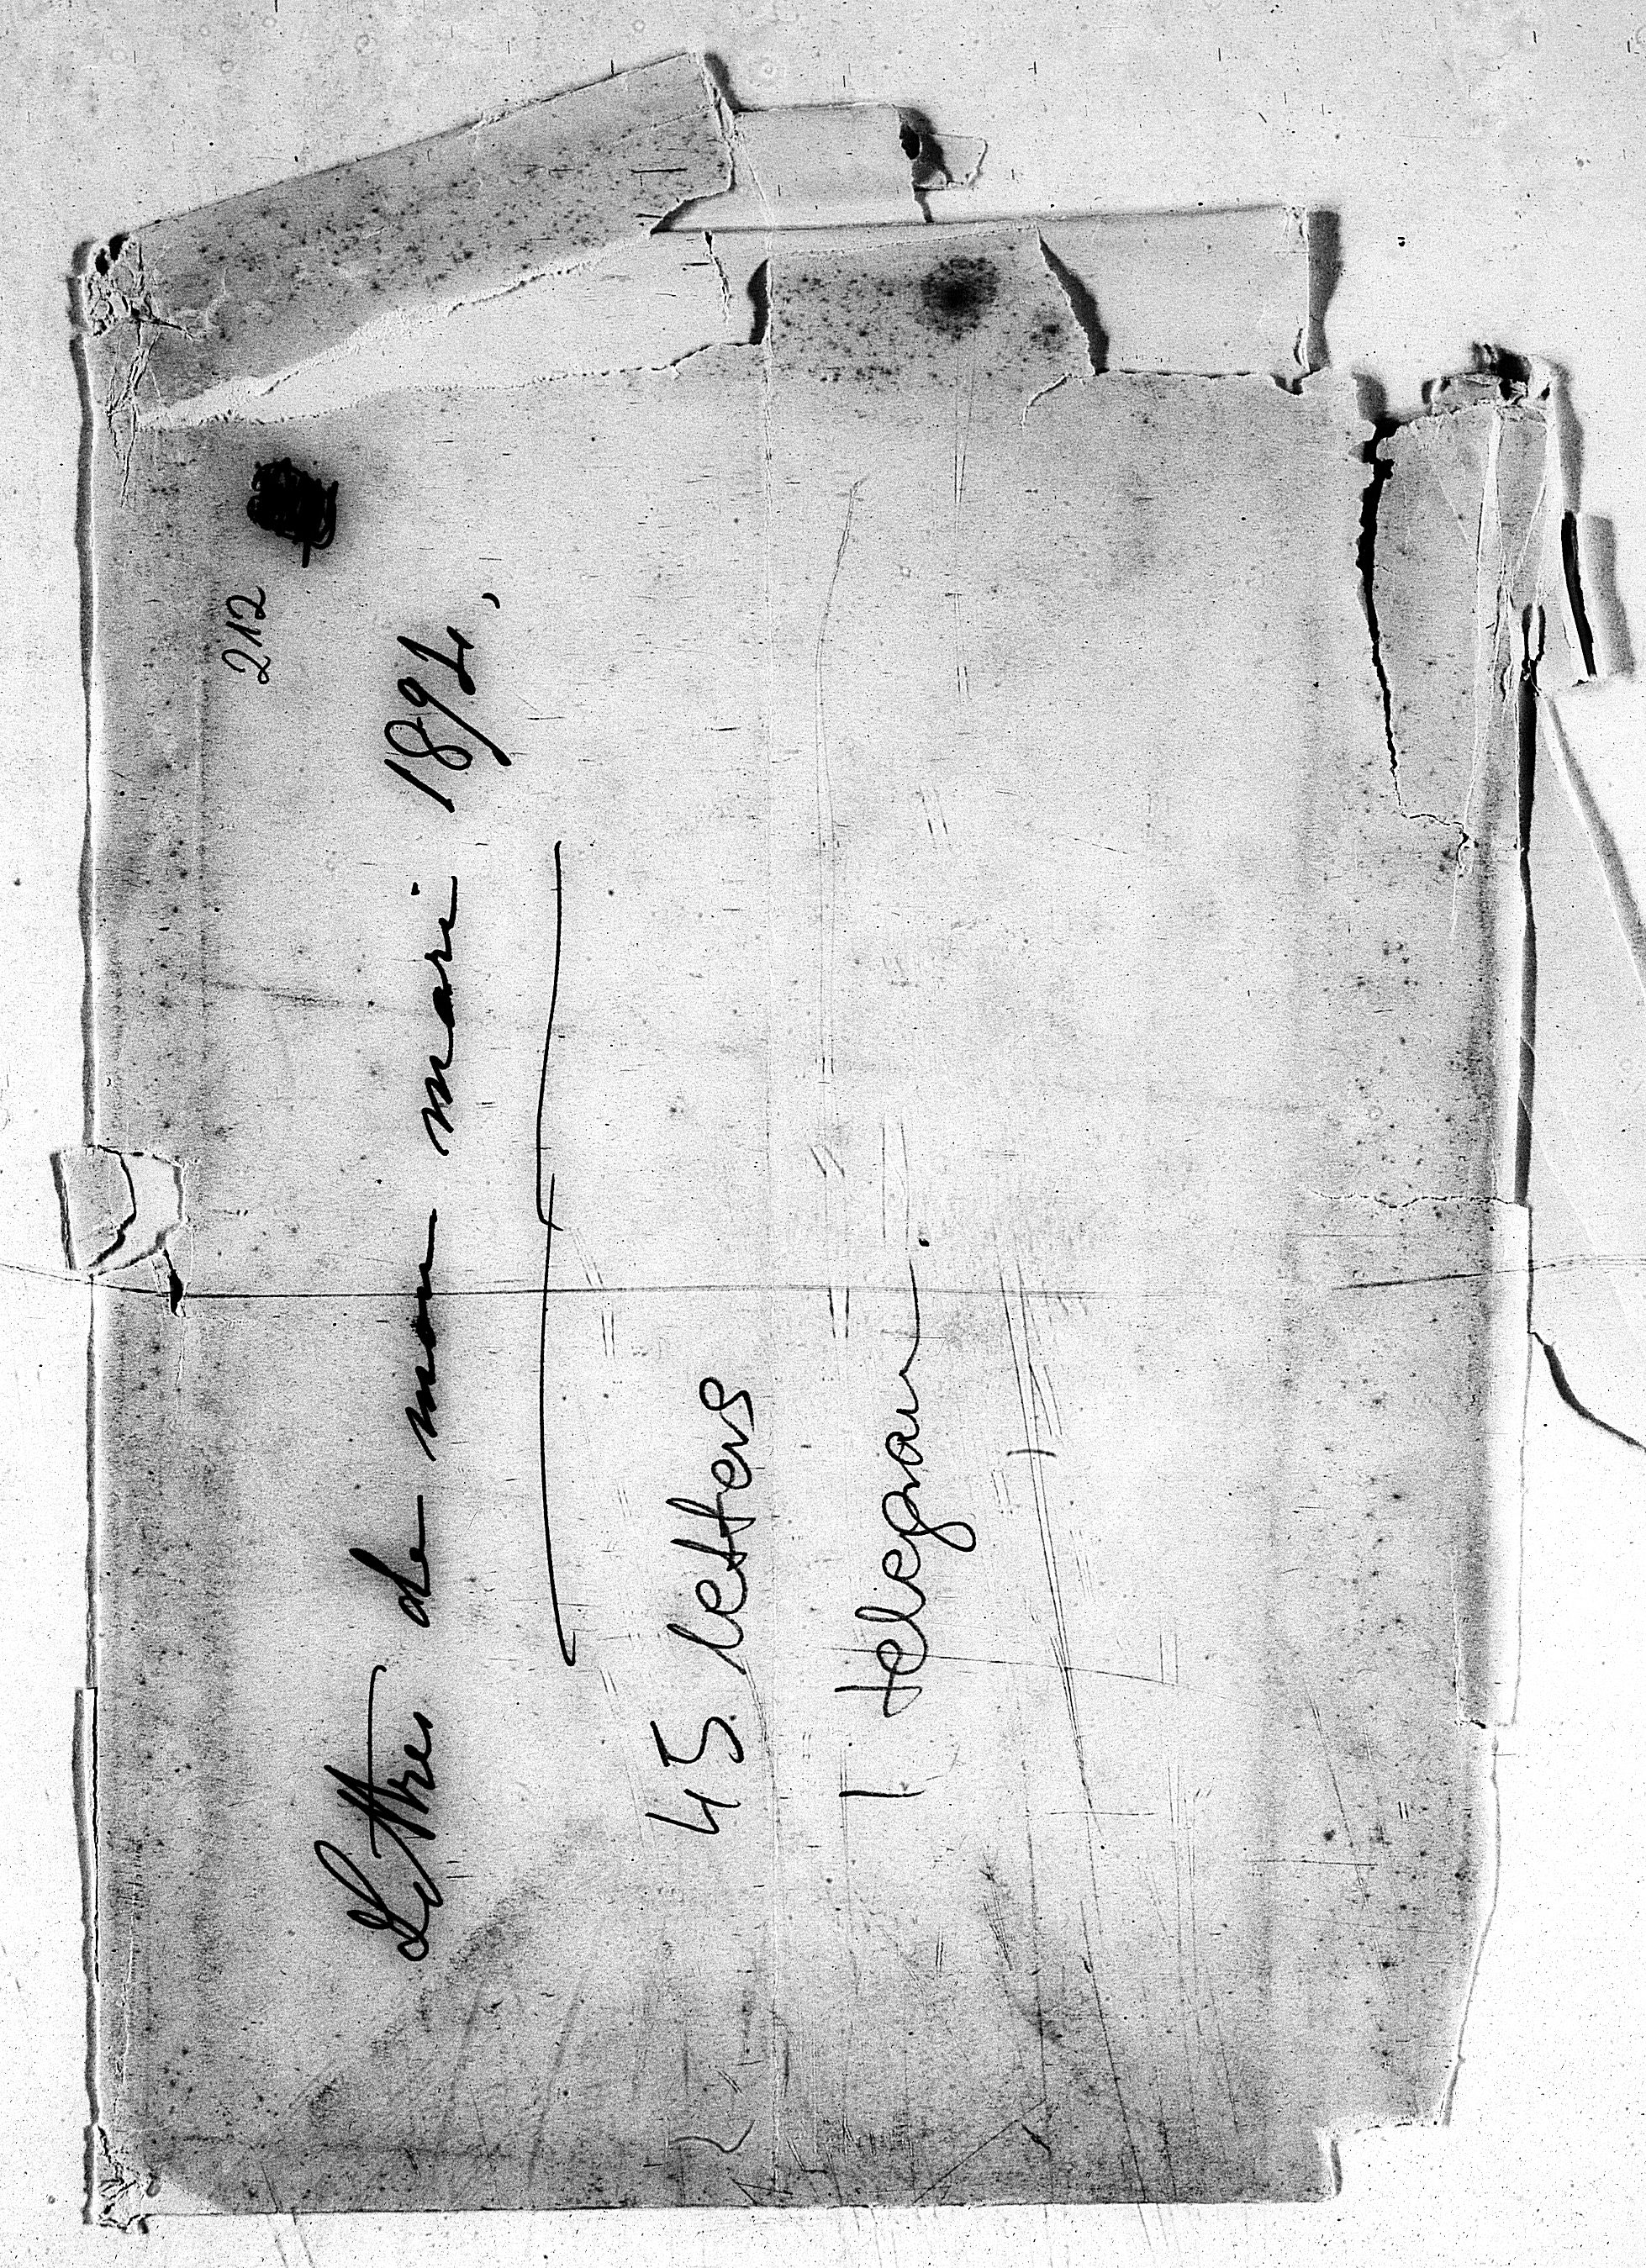 212
Lettres de mon mari 1894,
45 letters
1 telegram.